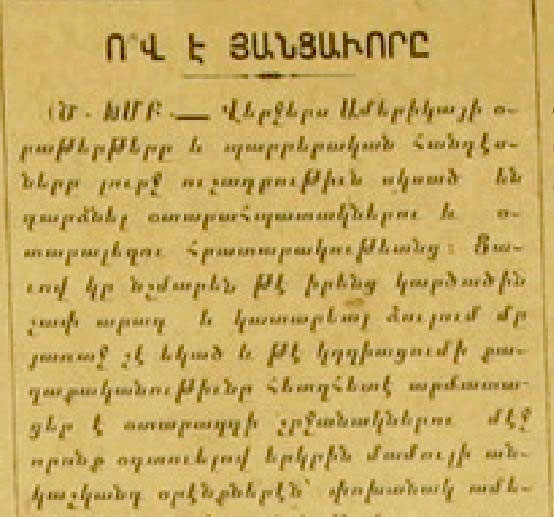 Ո՞Վ Է ՅԱՆՑԱՒՈՐԸ
(Ծ. ԽՄԲ. — Վերջերս Ամերիկայի օ-
րաթերթերը և պարբերական հանդէս-
ները լուրջ ուշադրութիւն սկսած են
դարձնել օտարահպատակներու և օ-
տարալեզու հրատարակութեանց։ Ցա-
ւով կը նշմարեն թէ իրենց կարծածին
չափ արագ և կատարեալ ձուլում մը
յառաջ չէ եկած և թէ կղզիացումի քա-
ղաքականութիւնը հետզհետէ արմատա-
ցեր է օտարազգի շրջանակներու մէջ
որոնք օգտուելով երկրին մամուլի ան-
կաշկանդ օրէնքներէն՝ փոխանակ ամե-